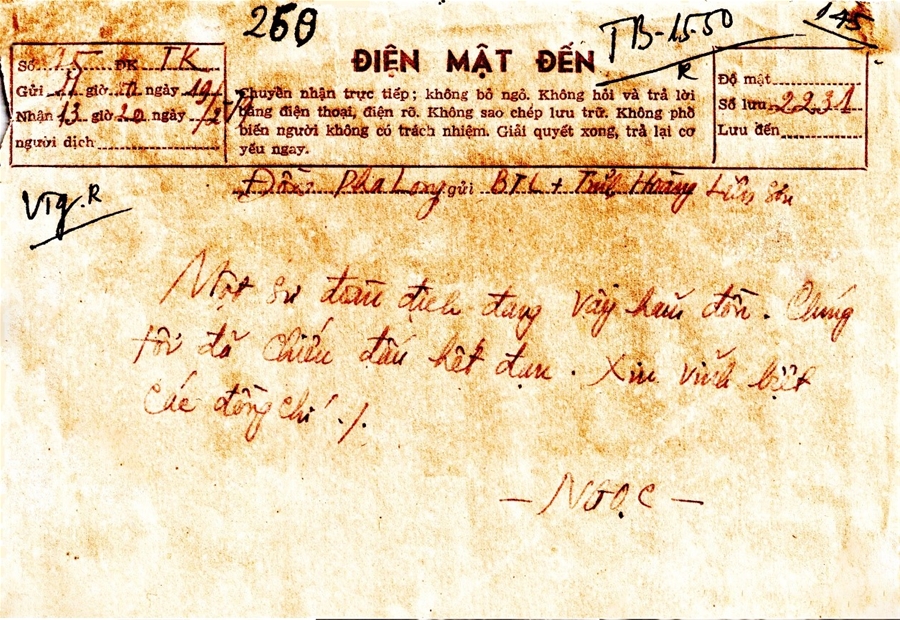 260
TB-15.50
R
145
ĐIỆN MẬT ĐẾN
Số 15 ĐK TK
Gửi 11 giờ 10 ngày 19/
Nhận 13 giờ 20 ngày
người dịch
Chuyển nhận trực tiếp; không bỏ ngỏ. Không hỏi và trả lời
bằng điện thoại, điện rõ. Không sao chép lưu trữ. Không phổ
biến người không có trách nhiệm. Giải quyết xong, trả lại cơ
yếu ngay.
Độ mật
Số lưu 2231
Lưu đến
VTg.R
Đồn Pha Long gửi BTL + Tỉnh Hoàng Liên Sơn
Một sư đoàn địch đang vây hãm đồn. Chúng
tôi đã chiến đấu hết đạn. Xin vĩnh biệt
các đồng chí ./.
— NGỌC —